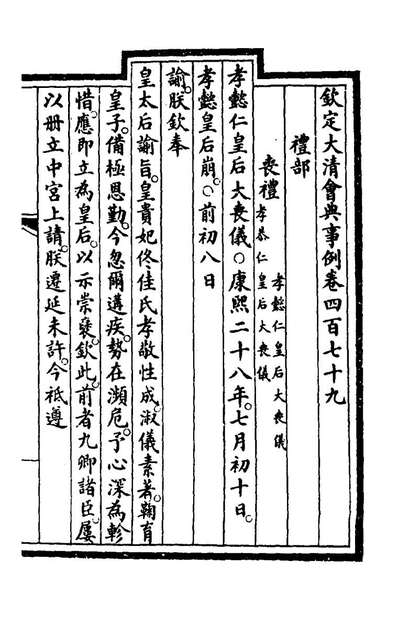 欽定大清會典事例卷四百七十九
禮部
喪禮 孝懿仁皇后大喪儀
孝恭仁皇后大喪儀
孝懿仁皇后大喪儀○康熙二十八年。七月初十日。
孝懿皇后崩。○前初八日
諭。朕欽奉
皇太后諭旨。皇貴妃佟佳氏孝敬性成。淑儀素著。鞠育
皇子。備極恩勤。今忽爾遘疾。勢在瀕危。予心深為軫
惜。應即立為皇后。以示崇褒。欽此。前者九卿諸臣。屢
以册立中宮上請。朕遷延未許。今祗遵